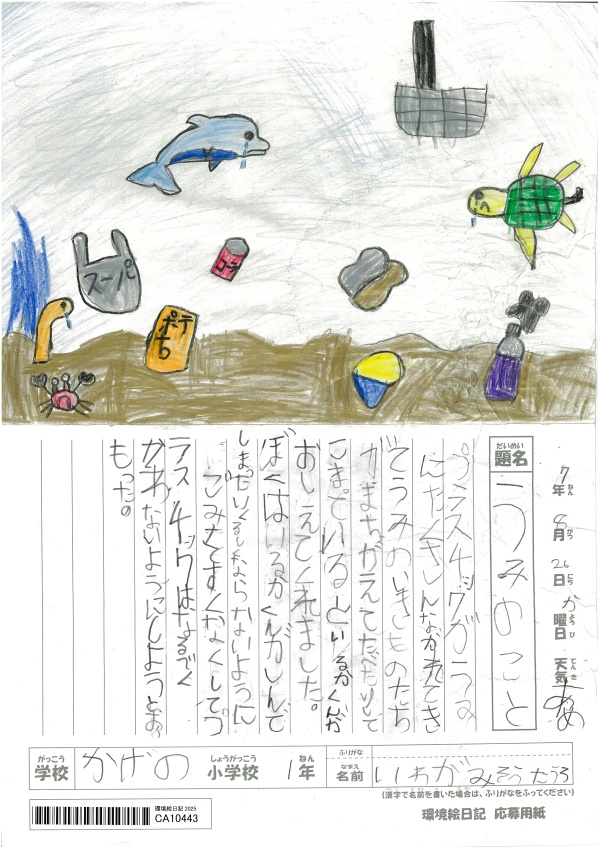 スーパ
ロー
ポテ
ち
7年 8月 26日 か曜日 天気 あめ
ねん がつ にち ようび てんき
だいめい
題名
うみのこと
プラスチックがうみ
にたくさんながれてき
てうみのいきものたち
がまちがえてたべたりして
こまっているといるかくんが
おしえてくれました。
ぼくはいるかくんがしんで
しまったりくるしくならないように
ごみをすくなくしてプ
ラスチックはなるべく
かわないようにしようとお
もった。
がっこう
学校
かげの
しょうがっこう
小学校
1年
ねん
ふりがな
なまえ
名前
いちがみそうたろう
(漢字で名前を書いた場合は、ふりがなをふってください)
環境絵日記 2025
CA10443
環境絵日記 応募用紙